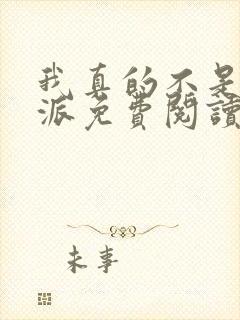 我真的不是
派免費閱讀
未事